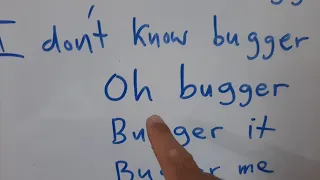 I don't know bugger
Oh bugger
Bugger it
Bugger me